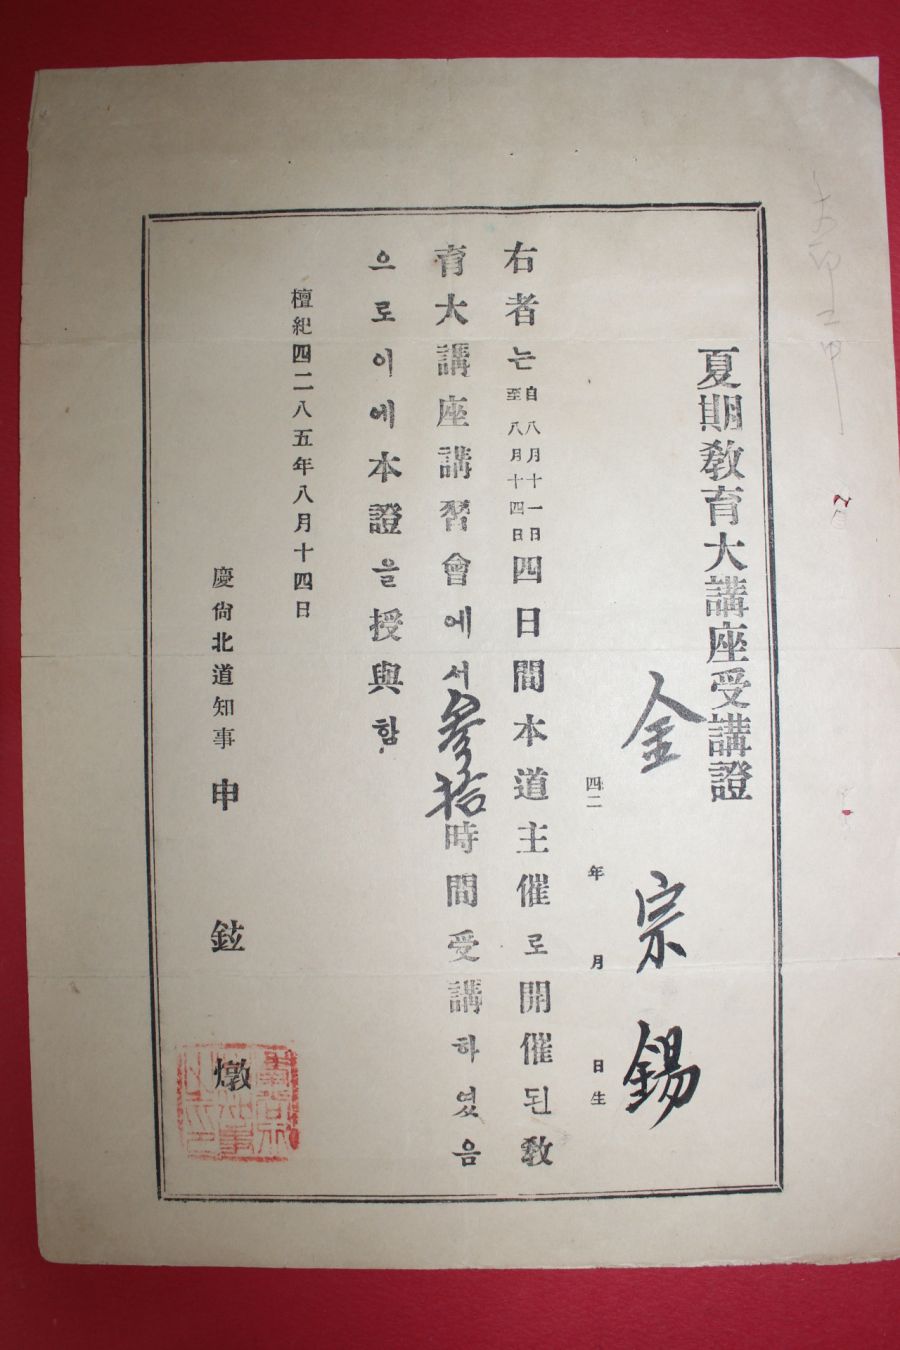 夏期敎育大講座受講證
金宗錫
四二 年 月 日生
右者는 自八月十一日 至八月十四日 四日間本道主催로開催된敎
育大講座講習會에서參拾時間受講하였음
으로이에本證을授與함
檀紀四二八五年八月十四日
慶尙北道知事 申鉉燉